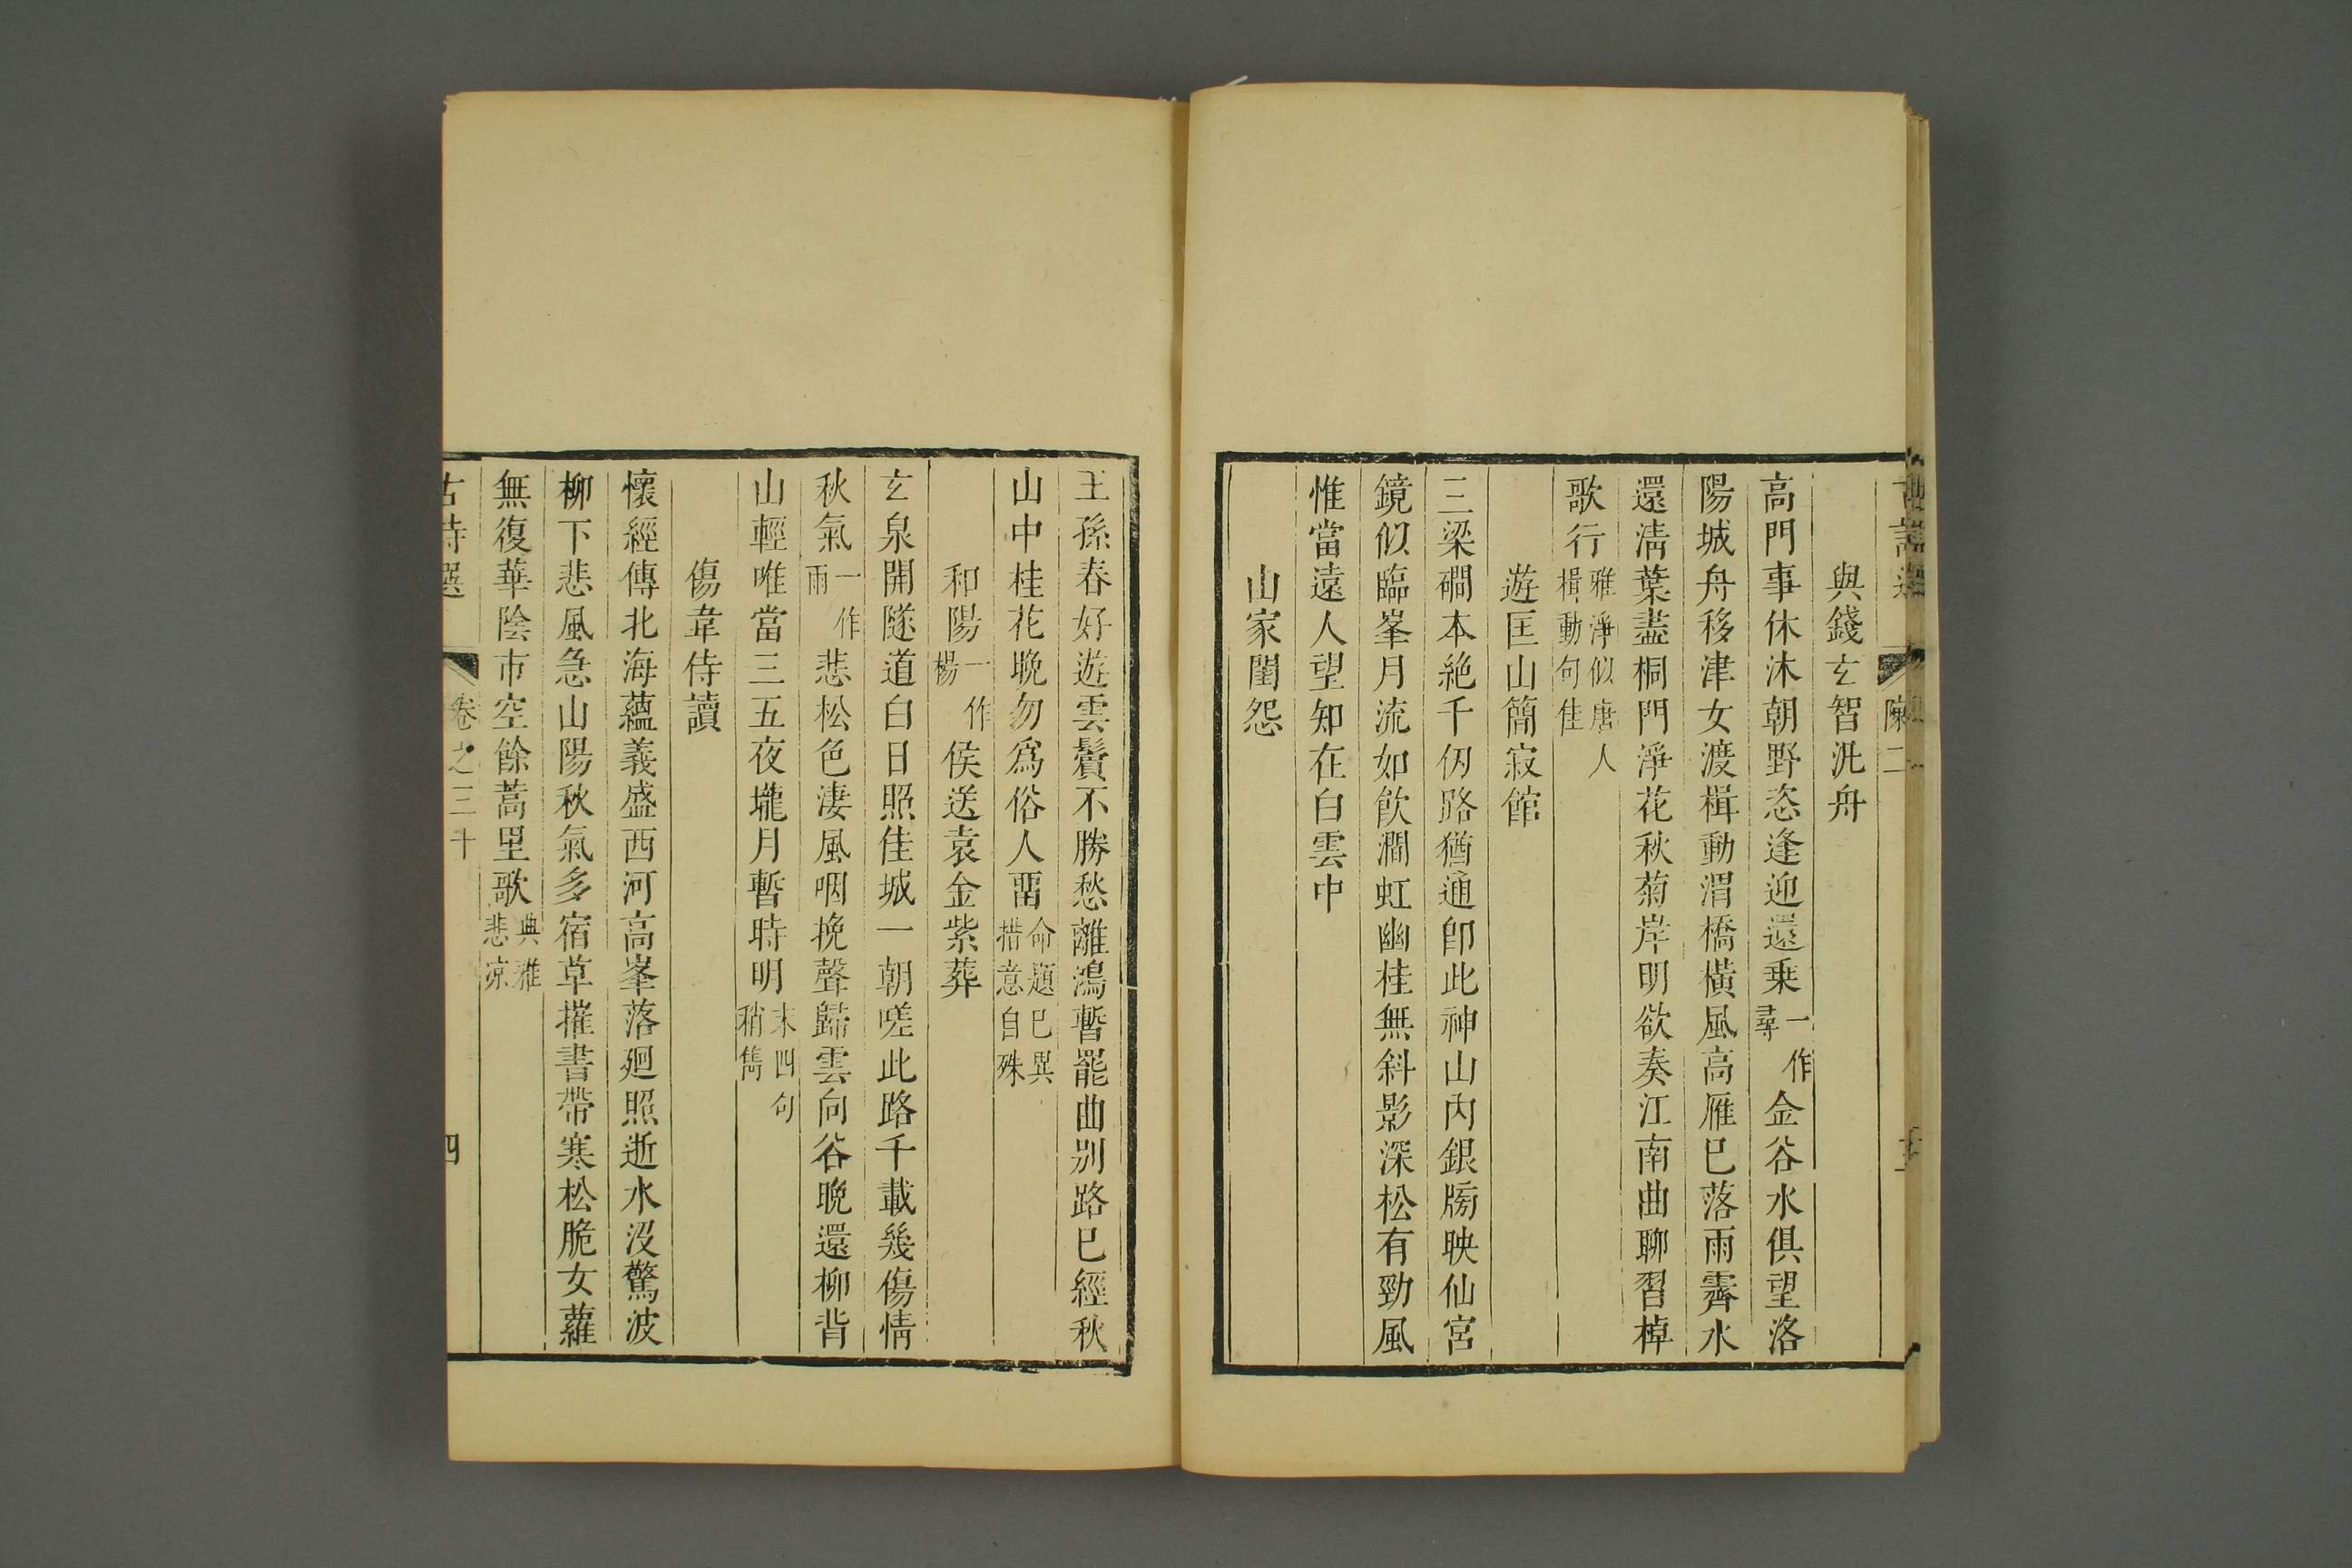 陳二
與錢玄智汎舟
高門事休沐朝野恣逢迎還乗一作尋金谷水俱望洛
陽城舟移津女渡楫動渭橋橫風高雁巳落雨霽水
還淸葉盡桐門淨花秋菊岸明欲奏江南曲聊習棹
歌行雅淨似唐人楫動句佳
遊匡山簡寂館
三梁磵本絶千仭路猶通卽此神山內銀牓映仙宮
鏡似臨峯月流如飮澗虹幽桂無斜影深松有勁風
惟當遠人望知在白雲中
山家閨怨
王孫春好遊雲鬢不勝愁離鴻暫罷曲別路巳經秋
山中桂花晚勿爲俗人畱命題巳異措意自殊
和陽一作楊侯送袁金紫葬
玄泉開隧道白日照佳城一朝嗟此路千載幾傷情
秋氣一作雨悲松色淒風咽挽聲歸雲向谷晚還柳背
山輕唯當三五夜壠月暫時明末四句稍雋
傷韋侍讀
懷經傳北海蘊義盛西河高峯落迴照逝水沒驚波
柳下悲風急山陽秋氣多宿草摧書帶寒松脆女蘿
無復華陰市空餘蒿里歌典雅悲涼
古詩選 卷之三十 四